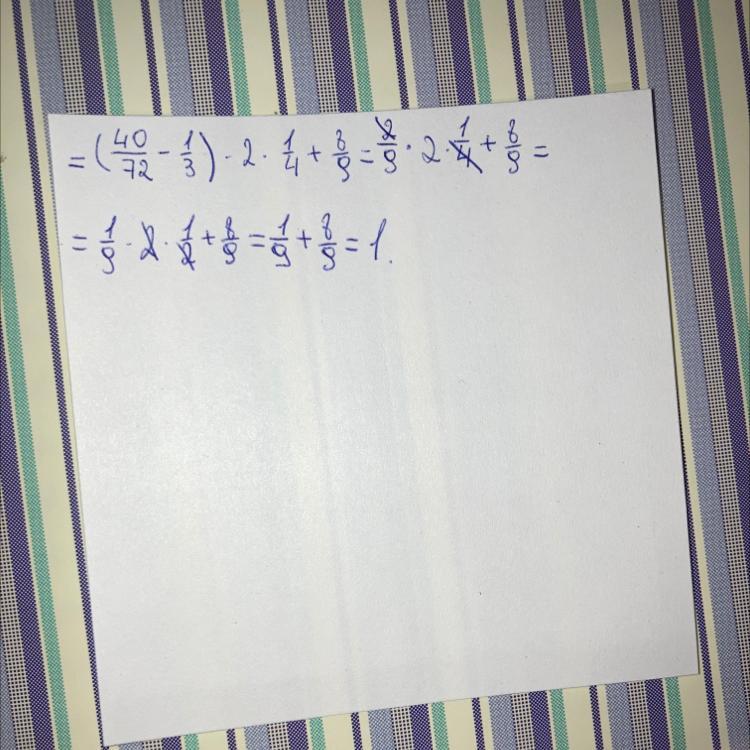 = (40/72 - 1/3) · 2 · 1/4 + 8/9 = 2/9 · 2 · 1/4 + 8/9 =
= 1/9 · 2 · 1/2 + 8/9 = 1/9 + 8/9 = 1.